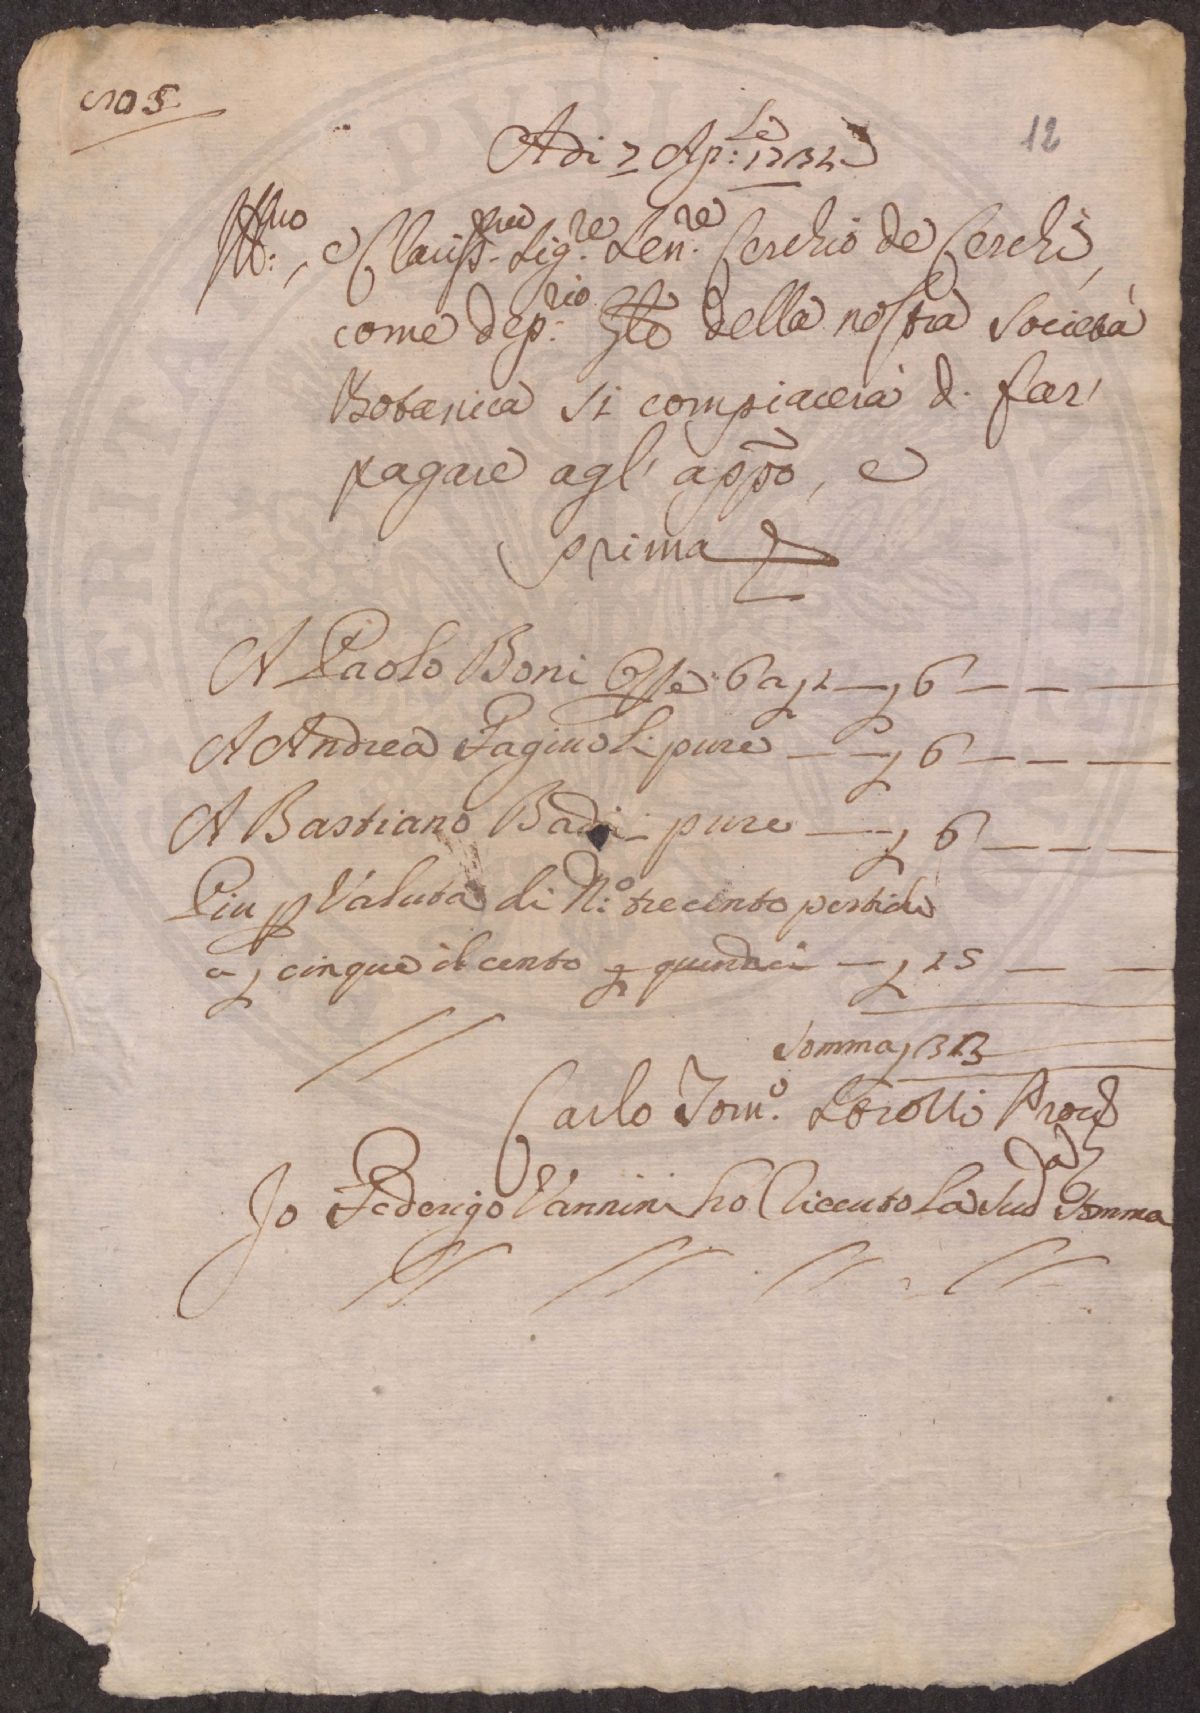 N° 5
12
Adi 7 Ap:le 1732
Ill:mo, e Clariss:mo Sig:re Sen:re Cerchio de Cerchi,
come dep:rio Gle della nostra Società
Botanica si compiacerà di far
pagare agl' appo, e
prima
A Paolo Boni Opre 6 a £ 1 — £ 6 — — —
A Andrea Fagiuoli pure — — £ 6 — — —
A Bastiano Badii pure — £ 6 — — —
Piu p Valuta di N:o trecento pertiche
a £ cinque il cento £ quindici — £ 15 — —
Somma £ 33
Carlo Tom:o
Io Federigo Vannini ho Riceuto la Sud:a Somma